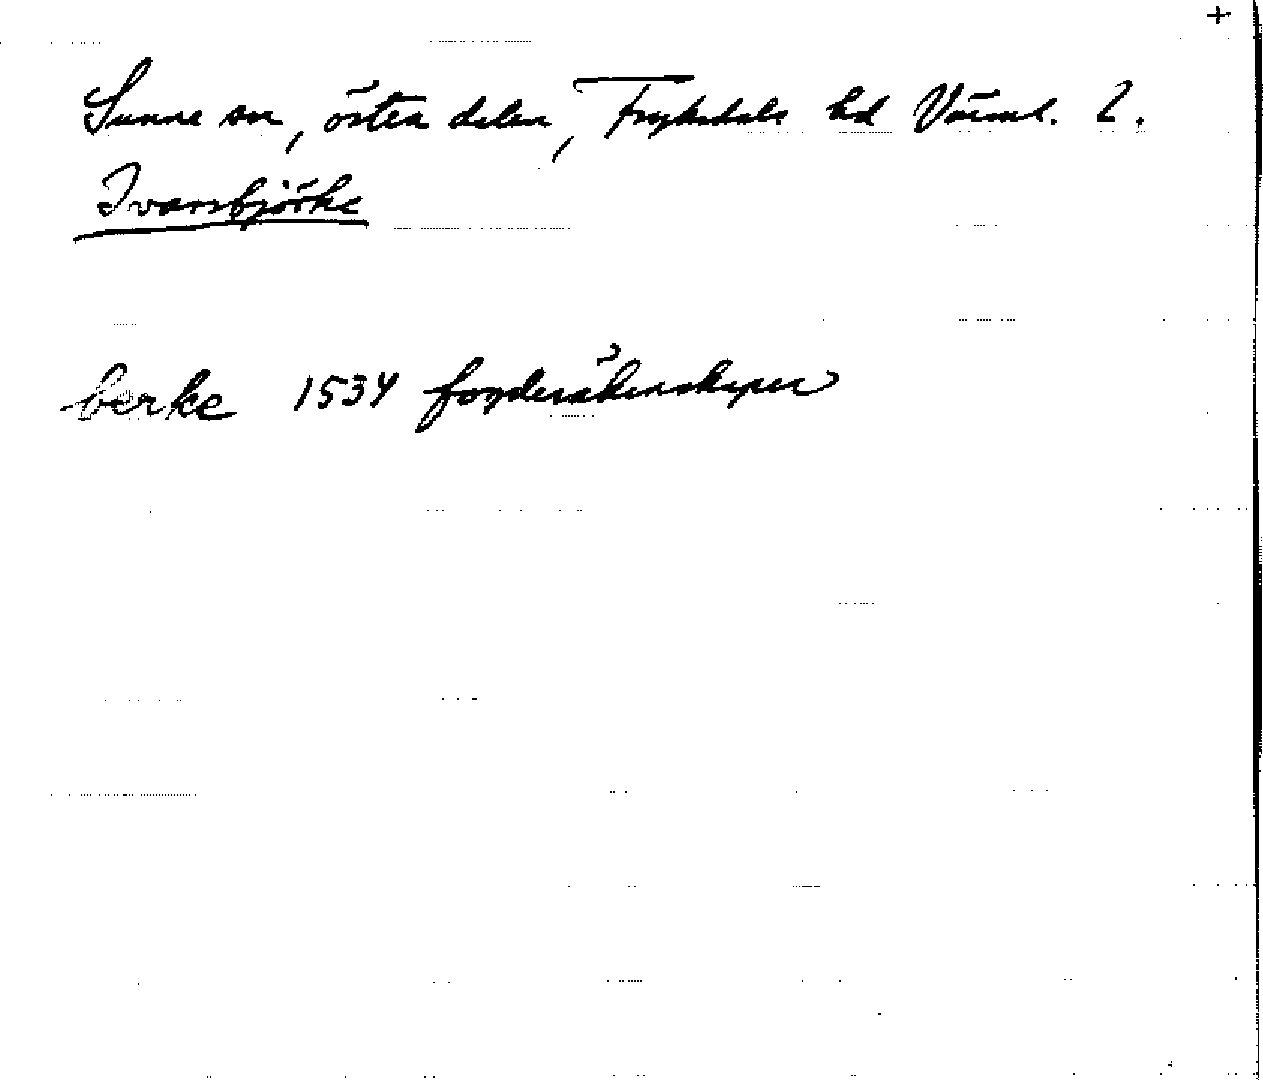 +
Sunne sn, östra delen, Fryksdals hd Värml. L.
Ivarsbjörke
berke 1534 fogderäkenskaper